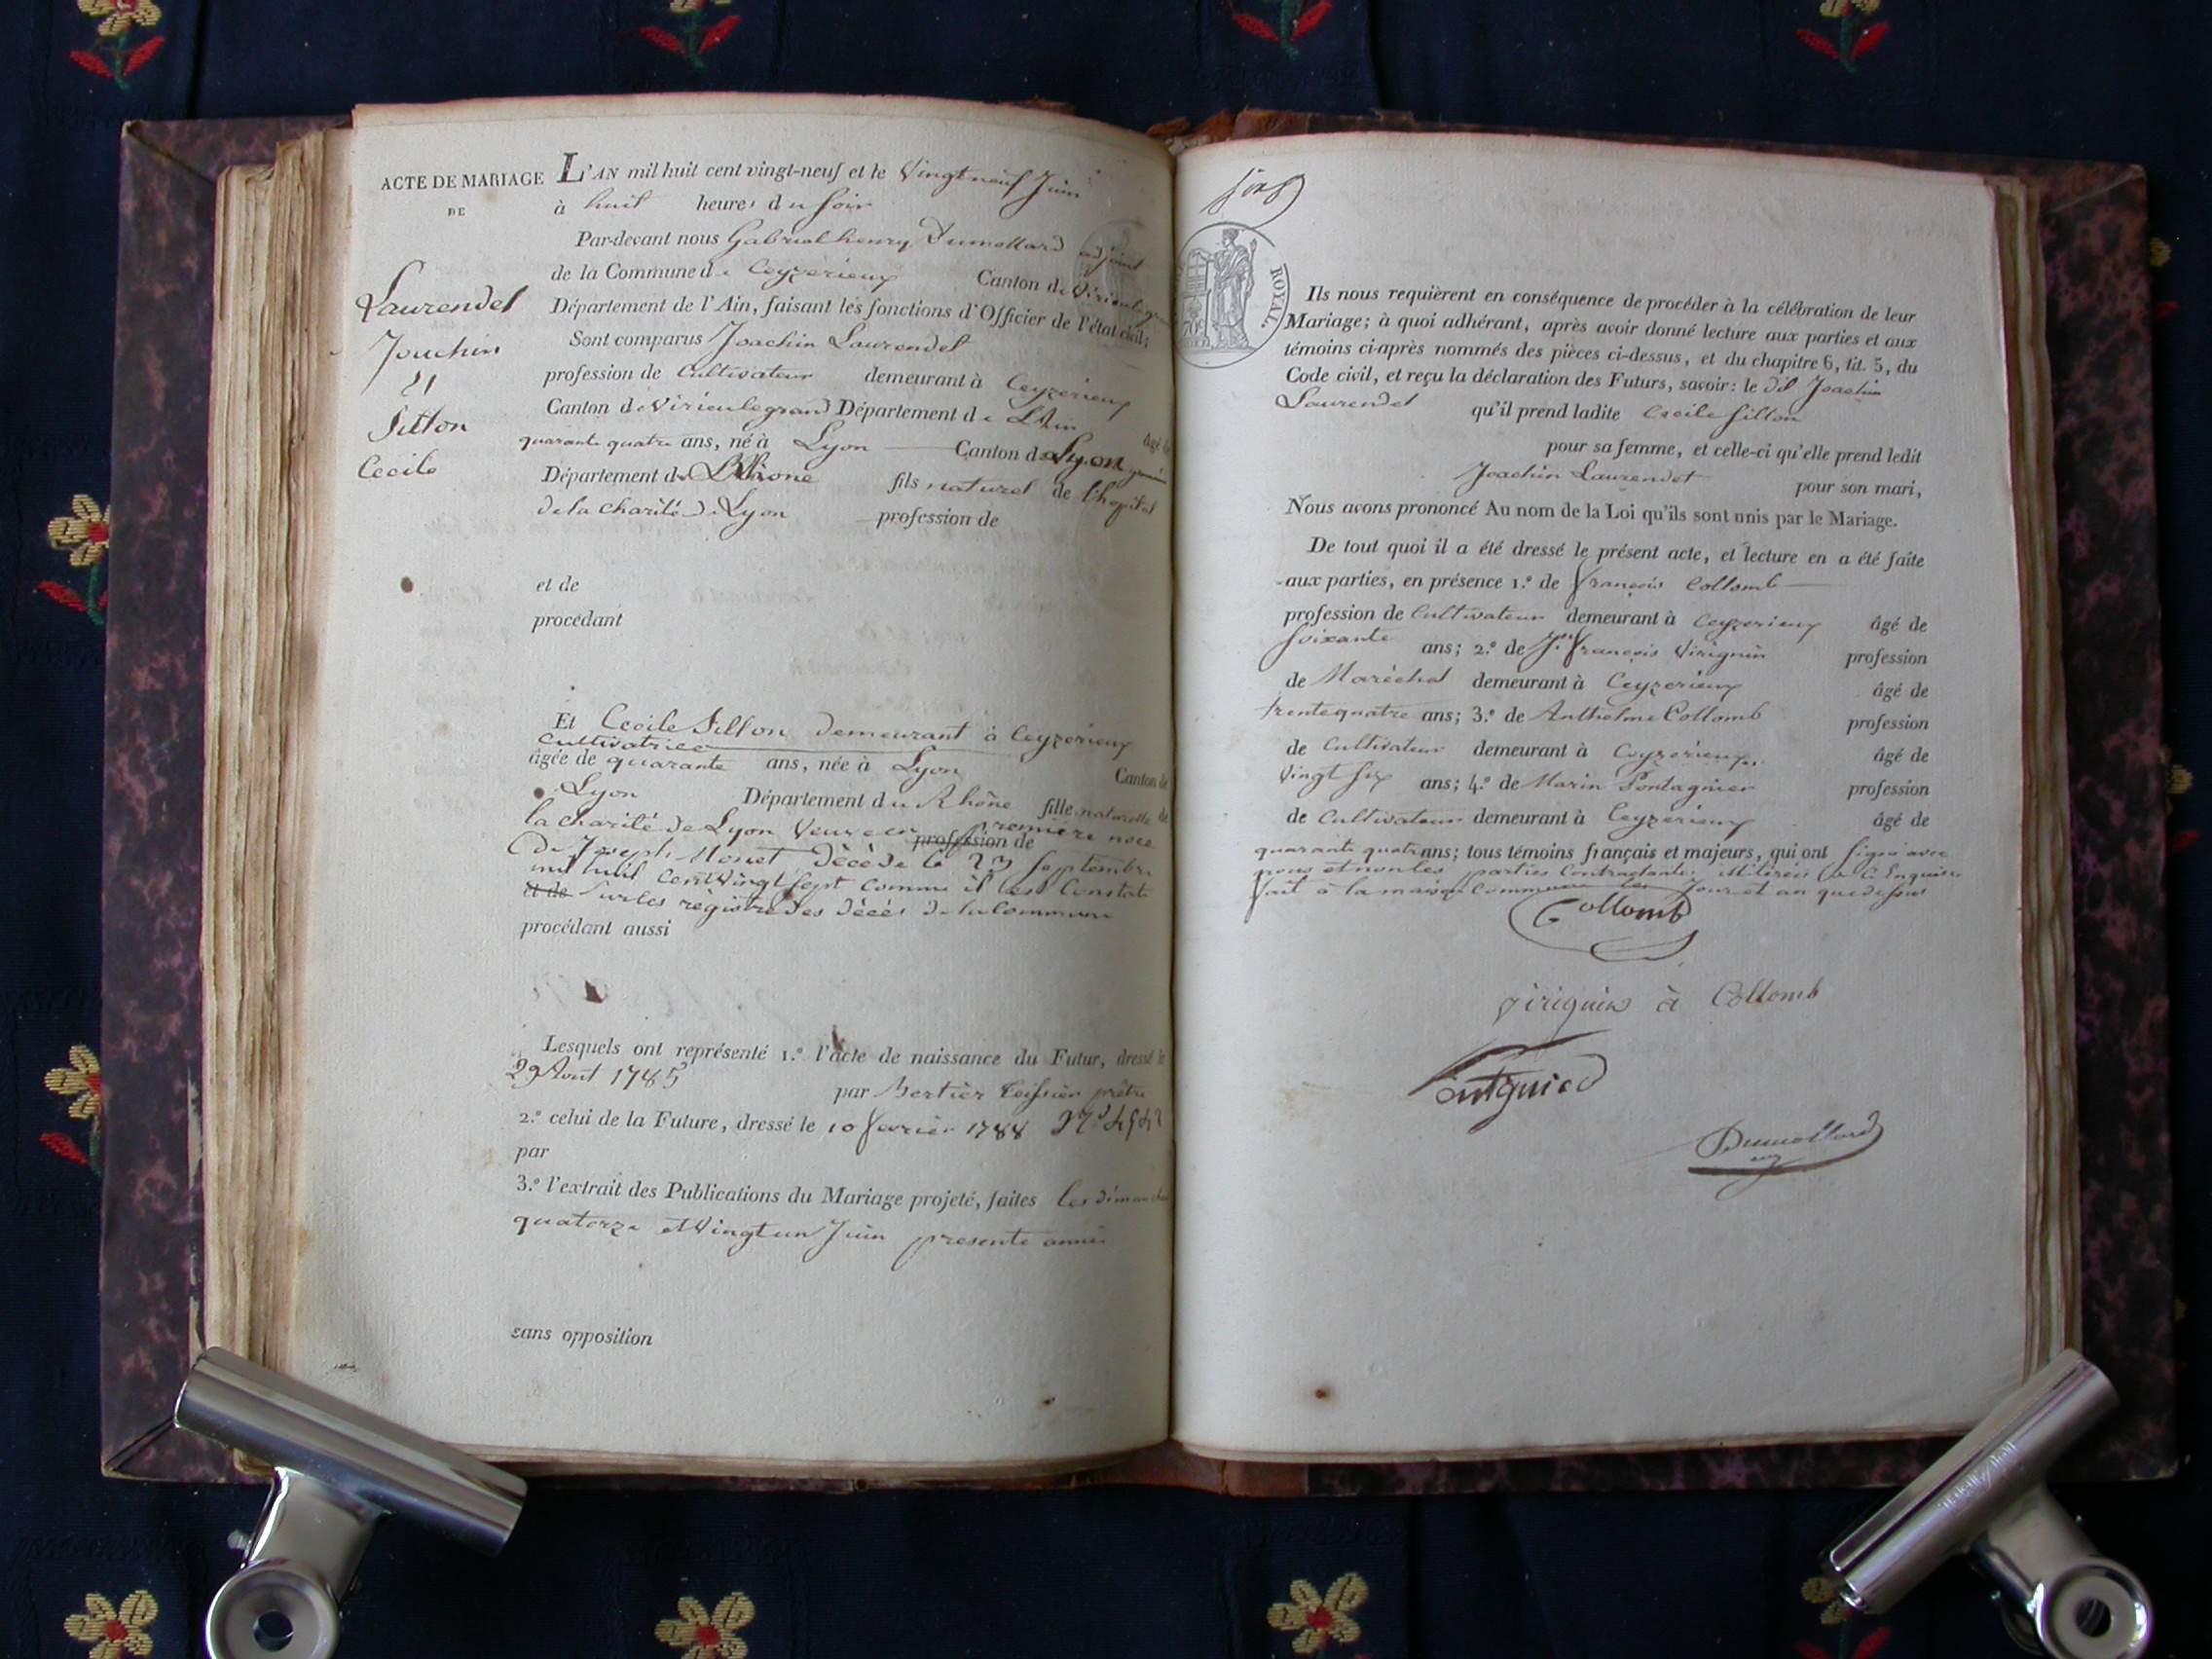 ACTE DE MARIAGE
DE
Laurendet
Joachin
Et
Sitton
Cecile
L'AN mil huit cent vingt-neuf et le Vingt neuf Juin
à huit heures du Soir
Par-devant nous Gabriel henry Dumollard adjoint
de la Commune de Ceyzerieux Canton de Virieulegrand
Département de l'Ain, faisant les fonctions d'Officier de l'état civil;
Sont comparus Joachin Laurendet
profession de Cultivateur demeurant à Ceyzerieux
Canton de Virieulegrand Département de L'Ain âgé de
quarante quatre ans, né à Lyon Canton de Lyon
Département du Rhône fils naturel de l'hopital
de la charité de Lyon profession de
et de
procédant
Et Cecile Sitton demeurant à Ceyzerieux
Cultivatrice
âgée de quarante ans, née à Lyon Canton de
Lyon Département du Rhône fille naturelle de
la charité de Lyon Veuve en première noce
profession de
De Joseph Monet Décédé le 23 Septembre
mil huit cent Vingt Sept comme il est Constaté
et de Sur les registre des décès de la Commune
procédant aussi
Lesquels ont représenté 1.º l'acte de naissance du Futur, dressé le
29 Aout 1785 par Bertier prêtre
2.º celui de la Future, dressé le 10 fevrier 1788
par
3.º l'extrait des Publications du Mariage projeté, faites les dimanches
quatorze et Vingt un Juin presente année
sans opposition
ROYAL.
Ils nous requièrent en conséquence de procéder à la célébration de leur
Mariage; à quoi adhérant, après avoir donné lecture aux parties et aux
témoins ci-après nommés des pièces ci-dessus, et du chapitre 6, tit. 5, du
Code civil, et reçu la déclaration des Futurs, savoir: le dit Joachin
Laurendet qu'il prend ladite Cecile Sitton
pour sa femme, et celle-ci qu'elle prend ledit
Joachin Laurendet pour son mari,
Nous avons prononcé Au nom de la Loi qu'ils sont unis par le Mariage.
De tout quoi il a été dressé le présent acte, et lecture en a été faite
aux parties, en présence 1.º de François Collomb
profession de Cultivateur demeurant à Ceyzerieux âgé de
Soixante ans; 2.º de Jn François Viriguin profession
de Maréchal demeurant à Ceyzerieux âgé de
trentequatre ans; 3.º de Anthelme Collomb profession
de Cultivateur demeurant à Ceyzerieux âgé de
Vingt Six ans; 4.º de Marin Pontagnier profession
de Cultivateur demeurant à Ceyzerieux âgé de
quarante quatre ans; tous témoins français et majeurs, qui ont Signé avec
nous et non les parties Contractantes illitérées de Ce Enquises
fait à la maison Commune les Jour et an que dessus
Collomb
Viriguin a Collomb
Dumollard